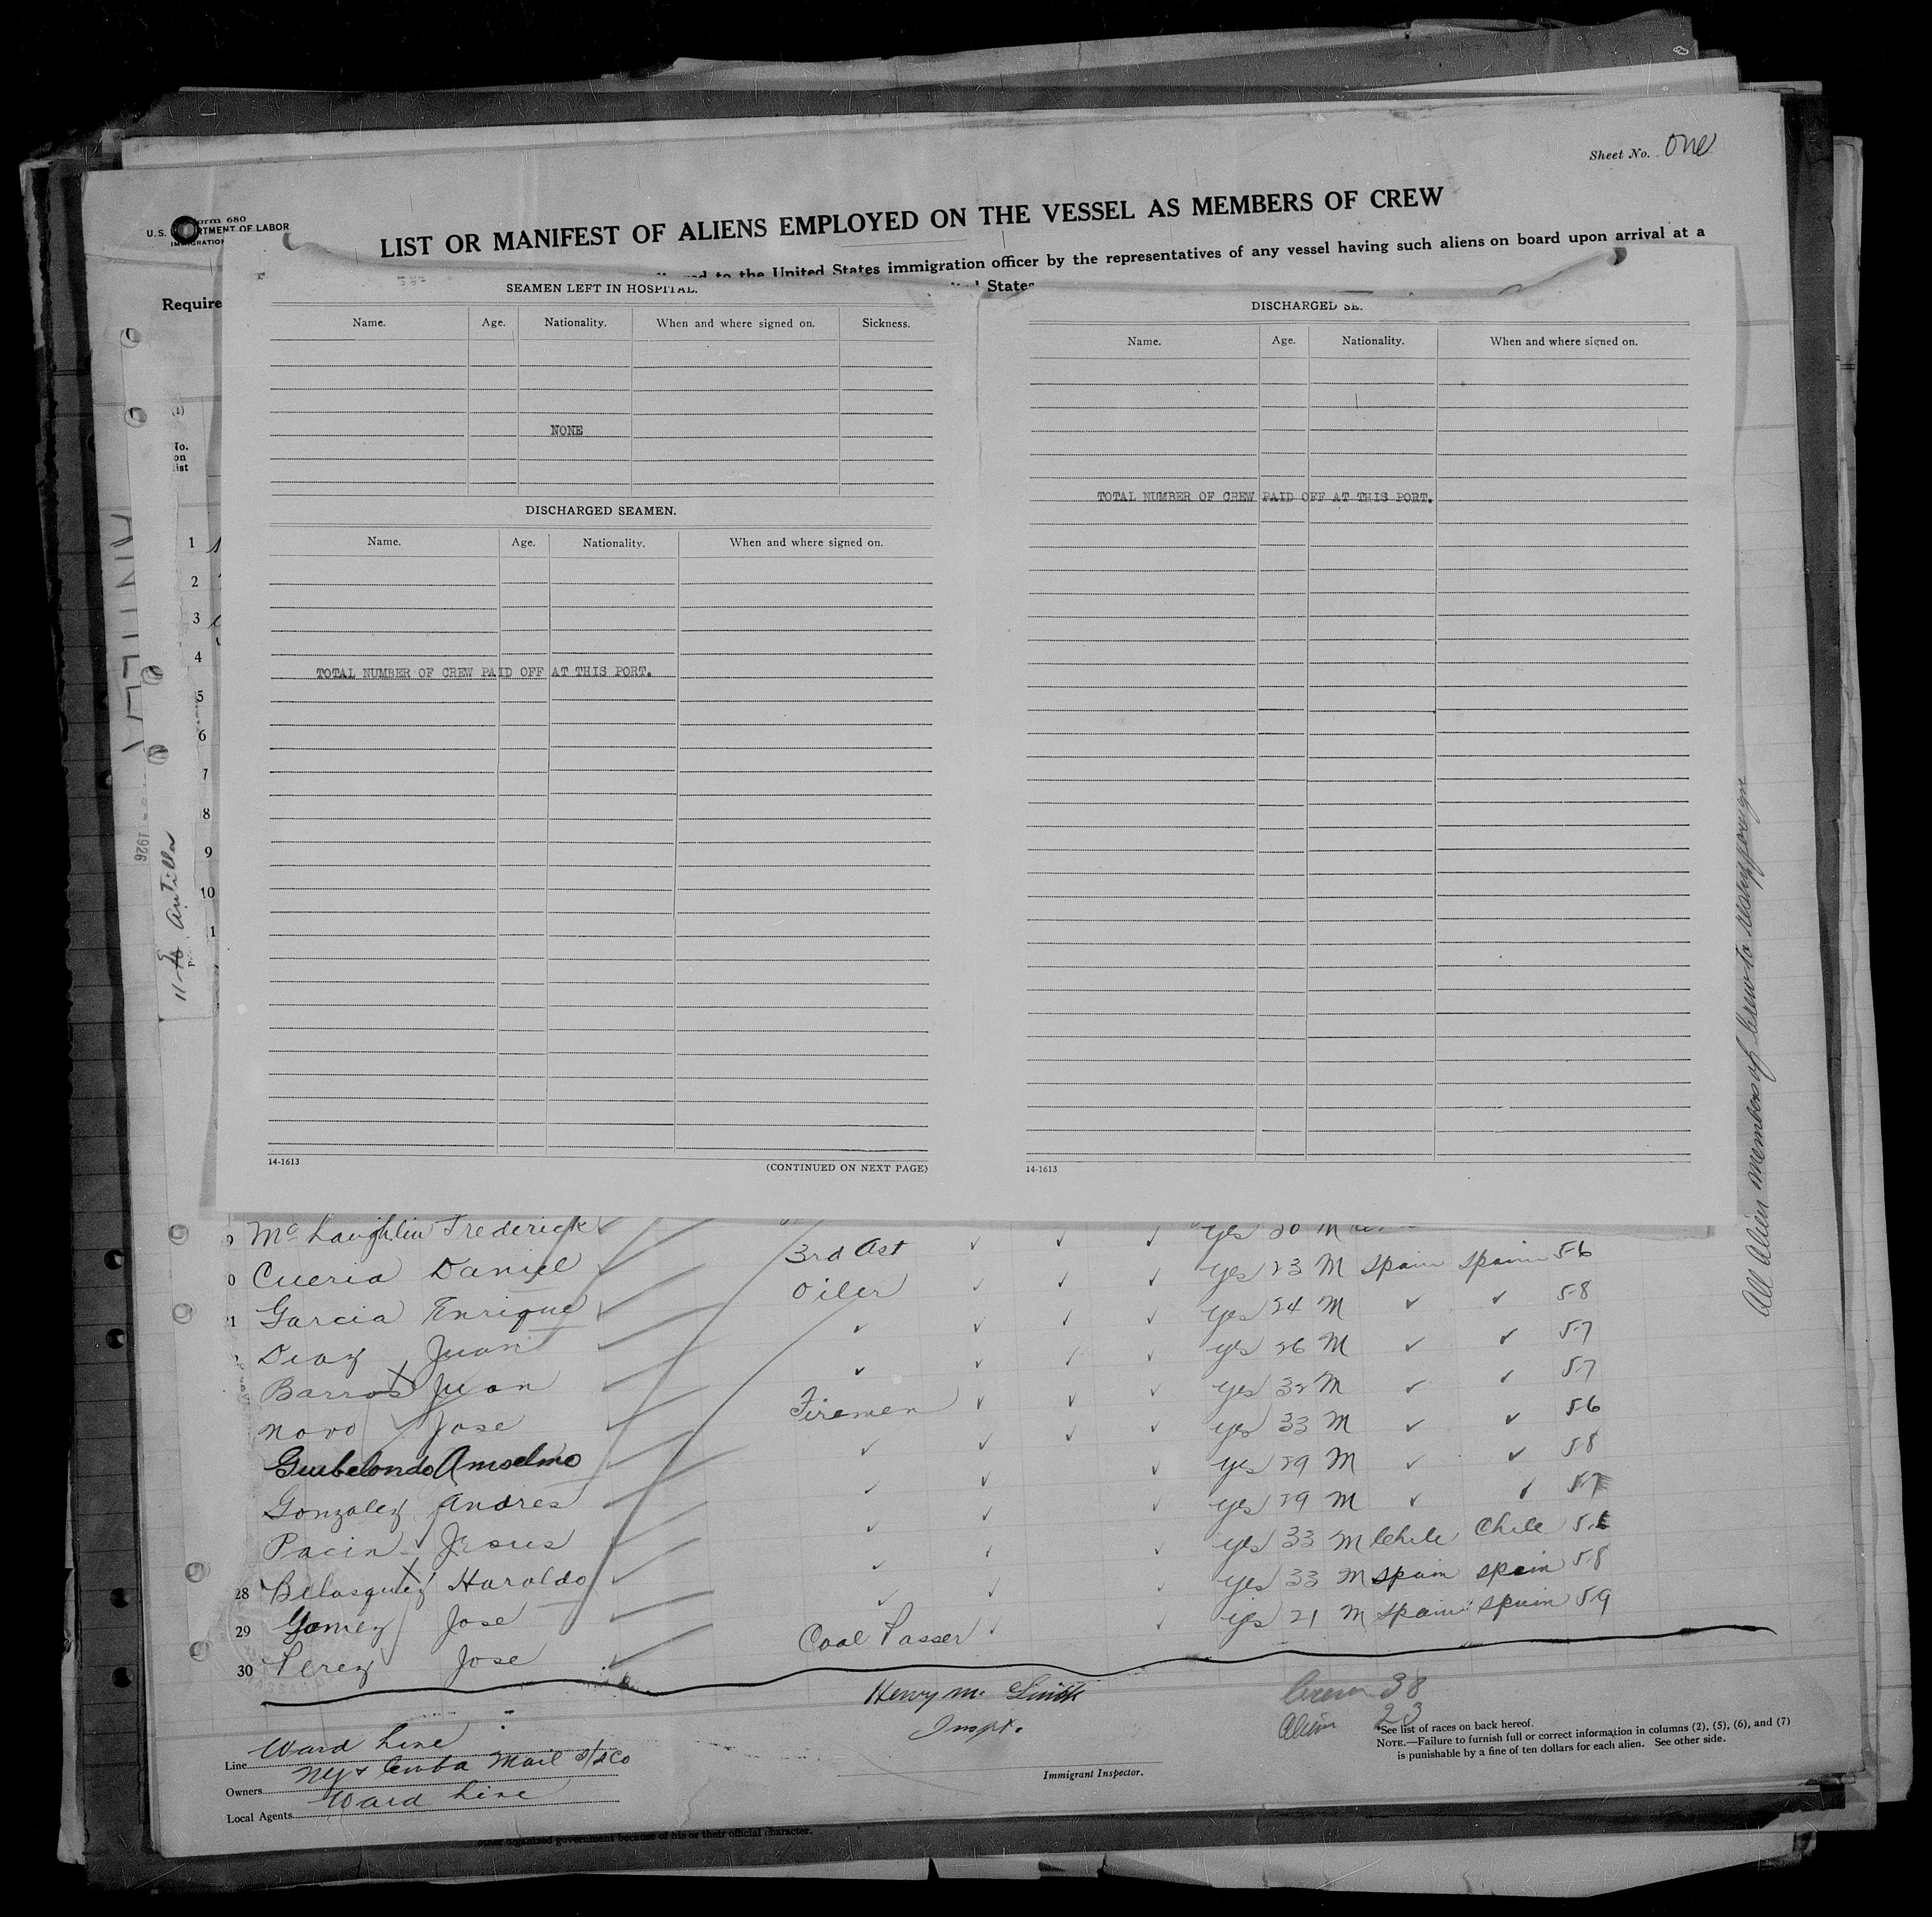 Sheet No. One
Form 680
U.S. DEPARTMENT OF LABOR
IMMIGRATION
LIST OR MANIFEST OF ALIENS EMPLOYED ON THE VESSEL AS MEMBERS OF CREW
Require
to the United States immigration officer by the representatives of any vessel having such aliens on board upon arrival at a
States
SEAMEN LEFT IN HOSPITAL.
Name. Age. Nationality. When and where signed on. Sickness.
NONE
DISCHARGED SEAMEN.
Name. Age. Nationality. When and where signed on.
TOTAL NUMBER OF CREW PAID OFF AT THIS PORT.
14-1613
(CONTINUED ON NEXT PAGE)
DISCHARGED SE.
Name. Age. Nationality. When and where signed on.
TOTAL NUMBER OF CREW PAID OFF AT THIS PORT.
14-1613
(1)
No.
on
list
1
2
3
4
5
6
7
8
9
10
1
ANTILLA
1926
Antilla
All Alien members of Crew to reship foreign
McLaughlin Frederick yes 20 M
Cueria Daniel 3rd Ast yes 23 M Spain Spain 5-6
Garcia Enrique Oiler yes 24 M 5-8
Diaz Juan yes 26 M 5-7
Barros Juan yes 32 M 5-7
Novo Jose Firemen yes 33 M 5-6
Guibelondo Anselmo yes 29 M 5-8
Gonzalez Andres yes 29 M 5-7
Pacin Jesus yes 33 M Chile Chile
28 Belasquez Haroldo yes 33 M Spain Spain 5-8
29 Gomez Jose yes 21 M Spain Spain 5-9
30 Perez Jose Coal Passer
Henry M. Smith
Inspt.
Immigrant Inspector.
Crew 38
Alien 23
Line Ward Line
Owners NY & Cuba Mail S/S Co
Local Agents Ward Line
*See list of races on back hereof.
NOTE.—Failure to furnish full or correct information in columns (2), (5), (6), and (7)
is punishable by a fine of ten dollars for each alien. See other side.
other organized government because of his or their official character.